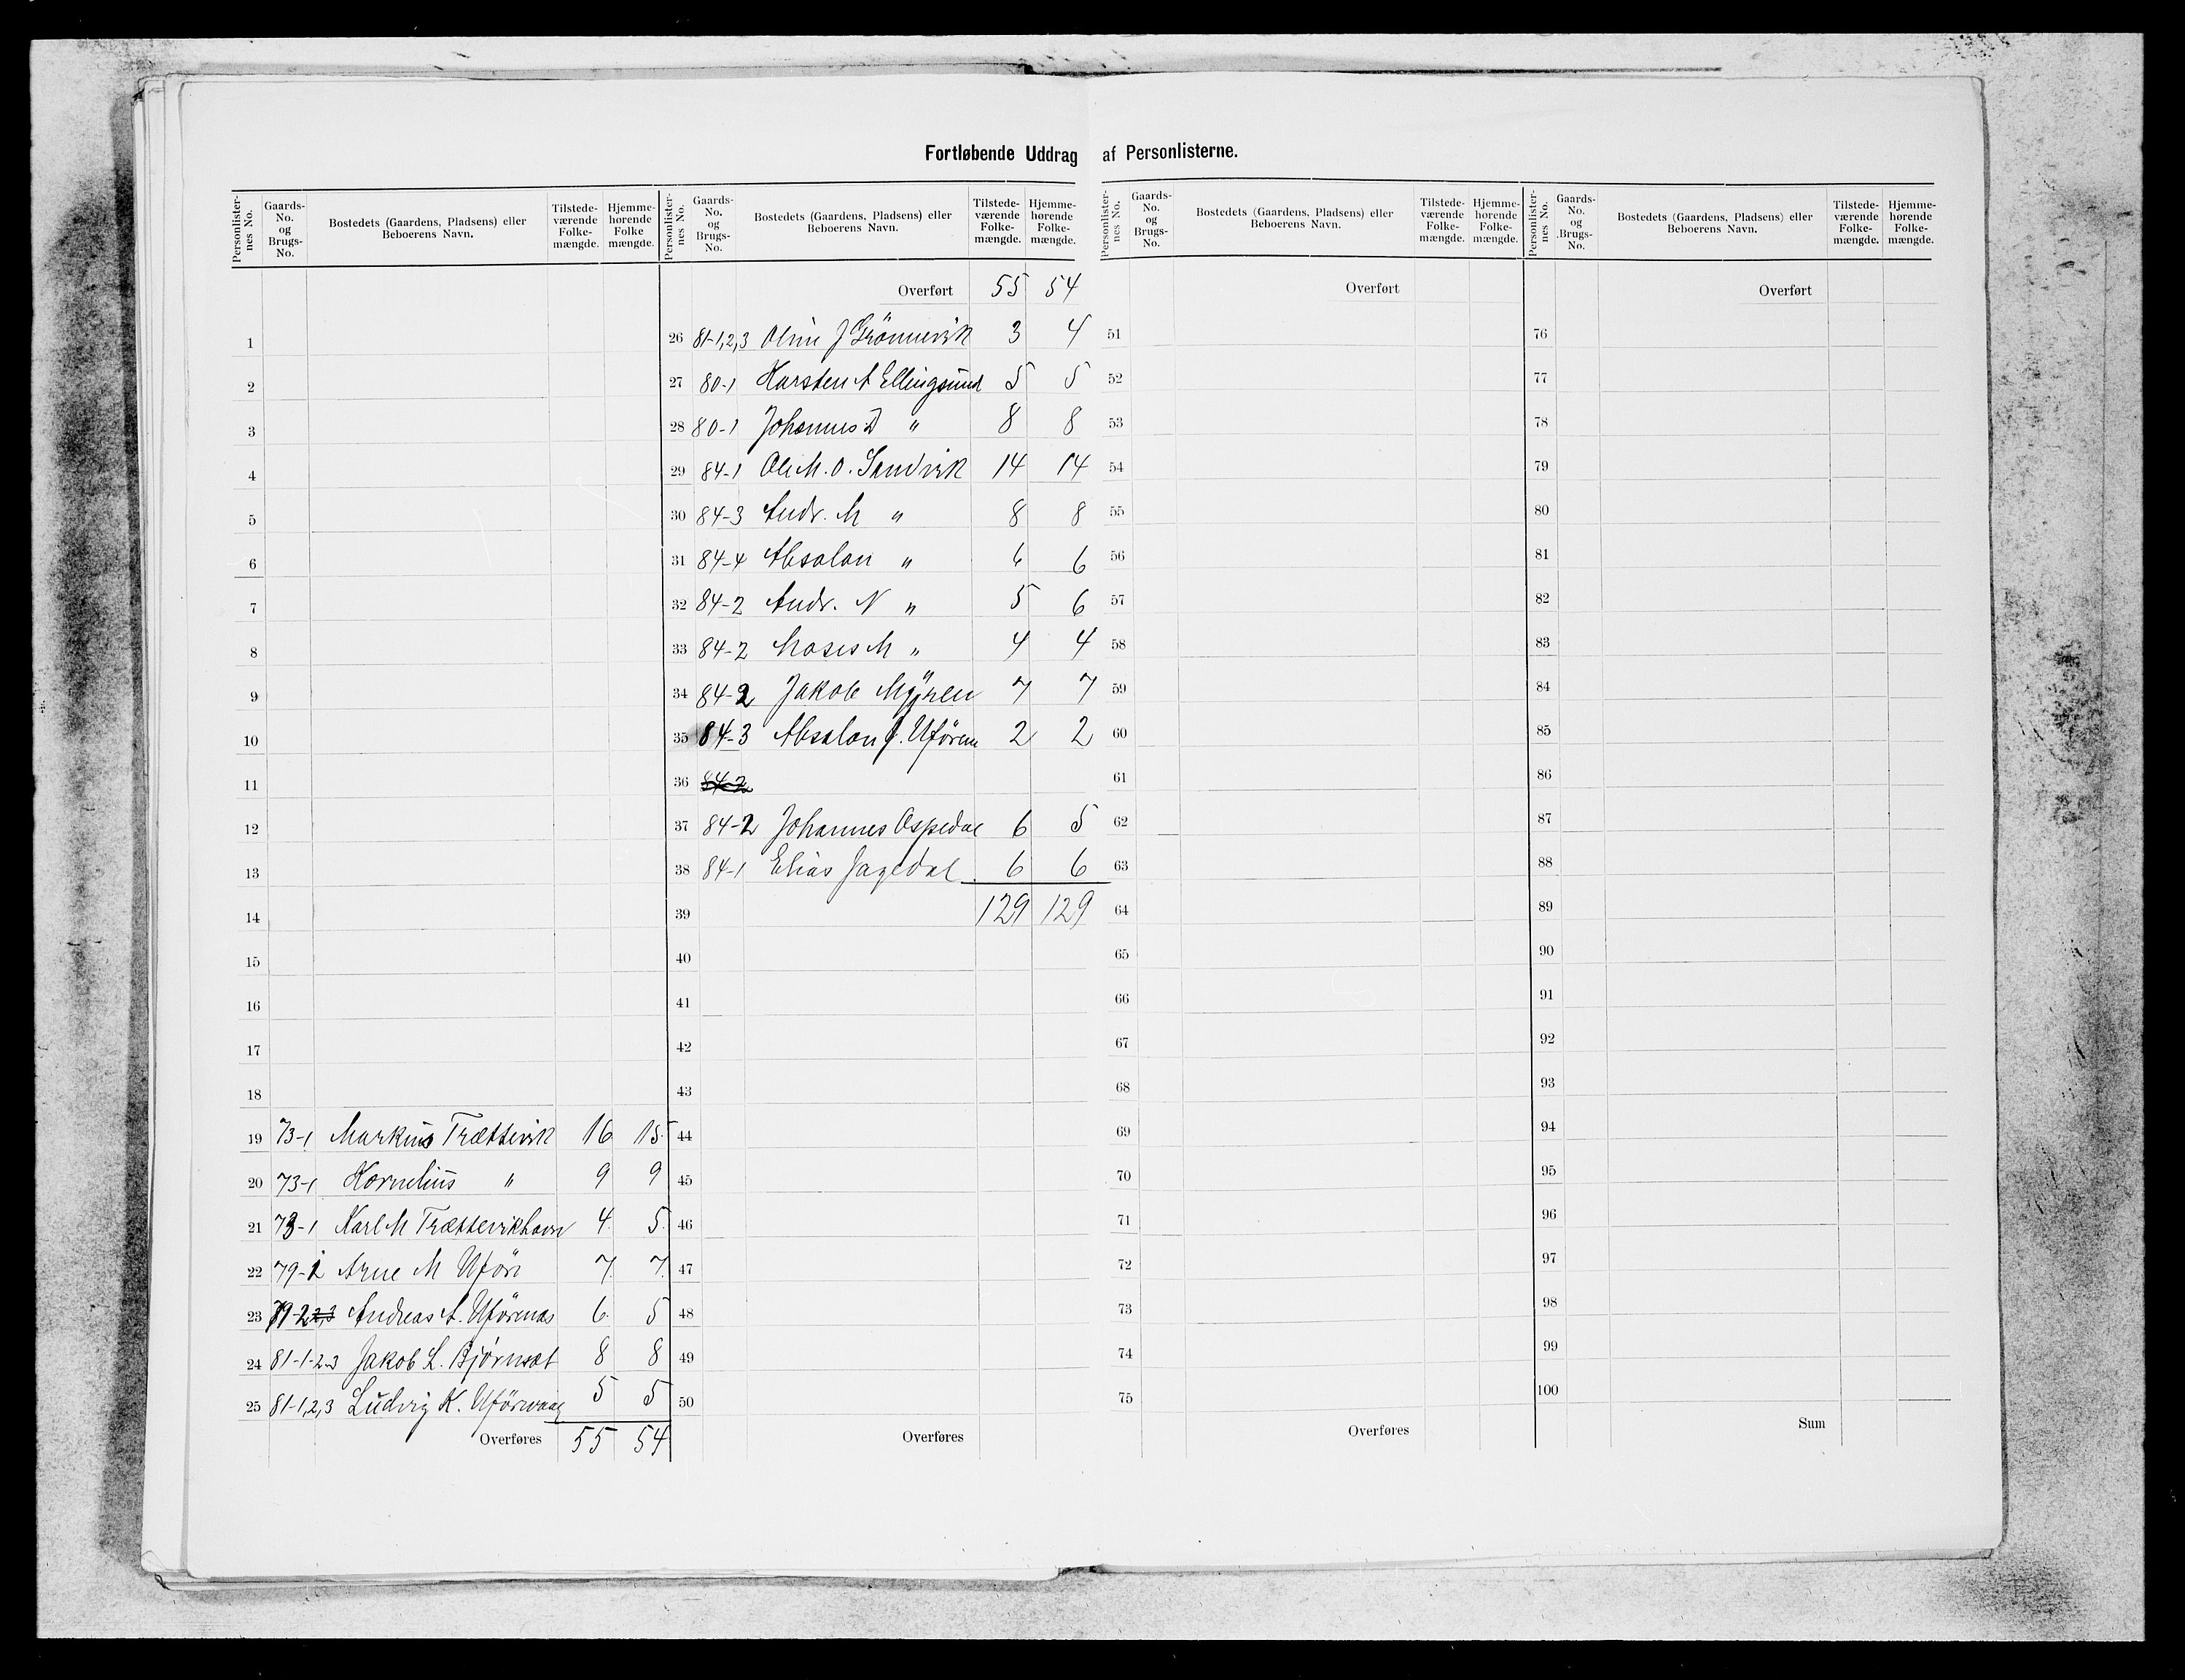 Fortløbende Uddrag af Personlisterne.
Personlisternes No. Gaards-No. og Brugs-No. Bostedets (Gaardens, Pladsens) eller Beboerens Navn. Tilstedeværende Folkemængde. Hjemmehørende Folke mængde.
1
2
3
4
5
6
7
8
9
10
11
12
13
14
15
16
17
18
19 73-1 Markus Trættevik 16 15
20 73-1 Kornelius " 9 9
21 73-1 Karl M Trættevikhavn 4 5
22 79-1 Arne M Uför 7 7
23 79-2 2,3 Andreas A. Uförenæs 6 5
24 81-1-2-3 Jakob L. Björnset 8 8
25 81-1,2,3 Ludvig K. Uförvaag 5 5
Overføres 55 54
Personlisternes No. Gaards-No. og Brugs-No. Bostedets (Gaardens, Pladsens) eller Beboerens Navn. Tilstedeværende Folkemængde. Hjemmehørende Folkemængde.
Overført 55 54
26 81-1,2,3 Oline J Grönnevik 3 4
27 80-1 Karsten A Ellingsund 5 5
28 80-1 Johannes D " 8 8
29 84-1 Ole M. O. Sandvik 14 14
30 84-3 Andr. M " 8 8
31 84-4 Absalon " 6 6
32 84-2 Andr. N " 5 6
33 84-2 Moses M " 4 4
34 84-2 Jakob Myjren 7 7
35 84-3 Absalon J. Ufören 2 2
36 84-2
37 84-2 Johannes Ospedal 6 5
38 84-1 Elias Jagedal 6 6
39 129 129
40
41
42
43
44
45
46
47
48
49
50
Overføres
Personlisternes No. Gaards-No. og Brugs-No. Bostedets (Gaardens, Pladsens) eller Beboerens Navn. Tilstedeværende Folkemængde. Hjemmehørende Folkemængde.
Overført
51
52
53
54
55
56
57
58
59
60
61
62
63
64
65
66
67
68
69
70
71
72
73
74
75
Overføres
Personlisternes No. Gaards-No. og Brugs-No. Bostedets (Gaardens, Pladsens) eller Beboerens Navn. Tilstedeværende Folkemængde. Hjemmehørende Folkemængde.
Overført
76
77
78
79
80
81
82
83
84
85
86
87
88
89
90
91
92
93
94
95
96
97
98
99
100
Sum